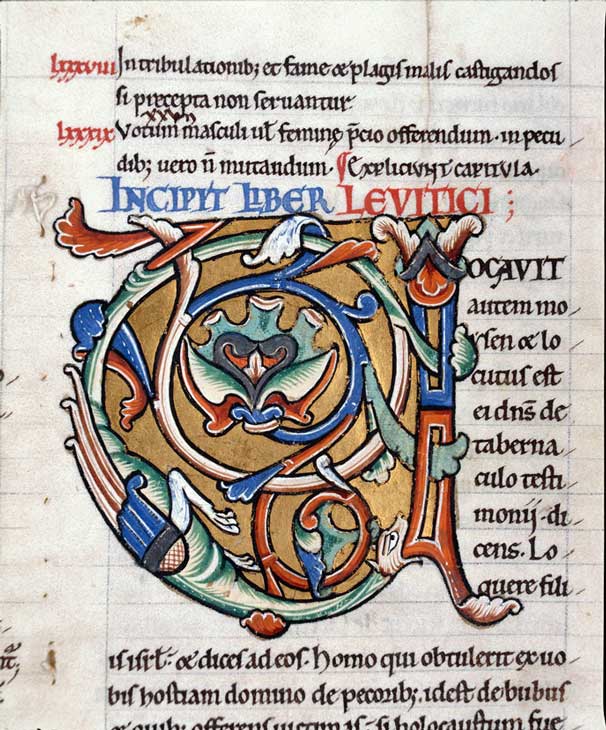 lxxxviii In tribulationib; et fame & plagis malis castigandos
si precepta non seruantur.
lxxxix Votum masculi ul femine p̄cio offerendum. in pecu
dib; uero n̄ mutandum. Expliciunt capitula.
INCIPIT LIBER LEVITICI;
VOCAVIT
autem mo
ysen & lo
cutus est
ei dn̄s de
taberna
culo testi
monij. di
cens. Lo
quere fili
is isrl̄. & dices ad eos. Homo qui obtulerit ex uo
bis hostiam domino de pecorib; idest de bubus
& ouib; offerens uictimas. si holocaustum fue